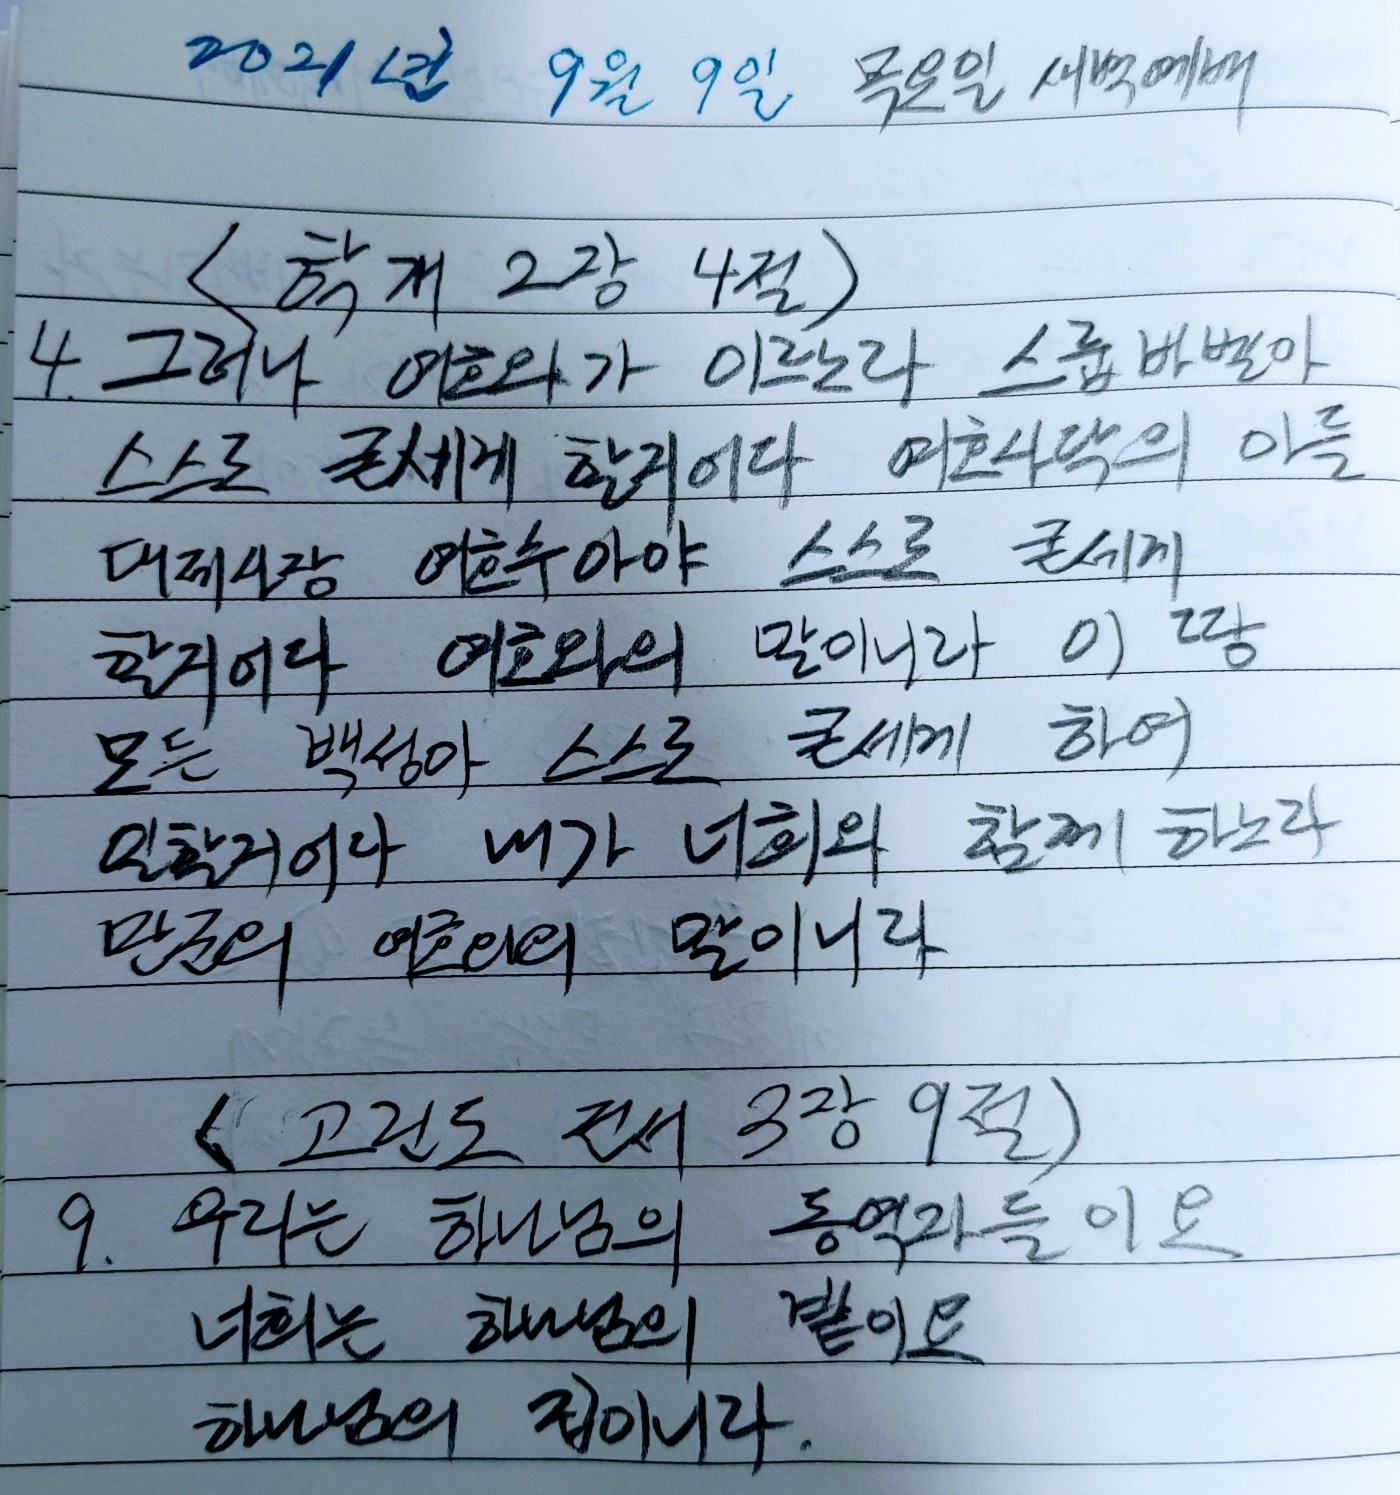 2021년 9월 9일 목요일 새벽예배
<학개 2장 4절>
4. 그러나 여호와가 이르노라 스룹바벨아
스스로 굳세게 할지어다 여호사닥의 아들
대제사장 여호수아야 스스로 굳세게
할지어다 여호와의 말이니라 이 땅
모든 백성아 스스로 굳세게 하여
일할지어다 내가 너희와 함께 하노라
만군의 여호와의 말이니라
<고린도 전서 3장 9절)
9. 우리는 하나님의 동역자들이요
너희는 하나님의 밭이요
하나님의 집이니라.